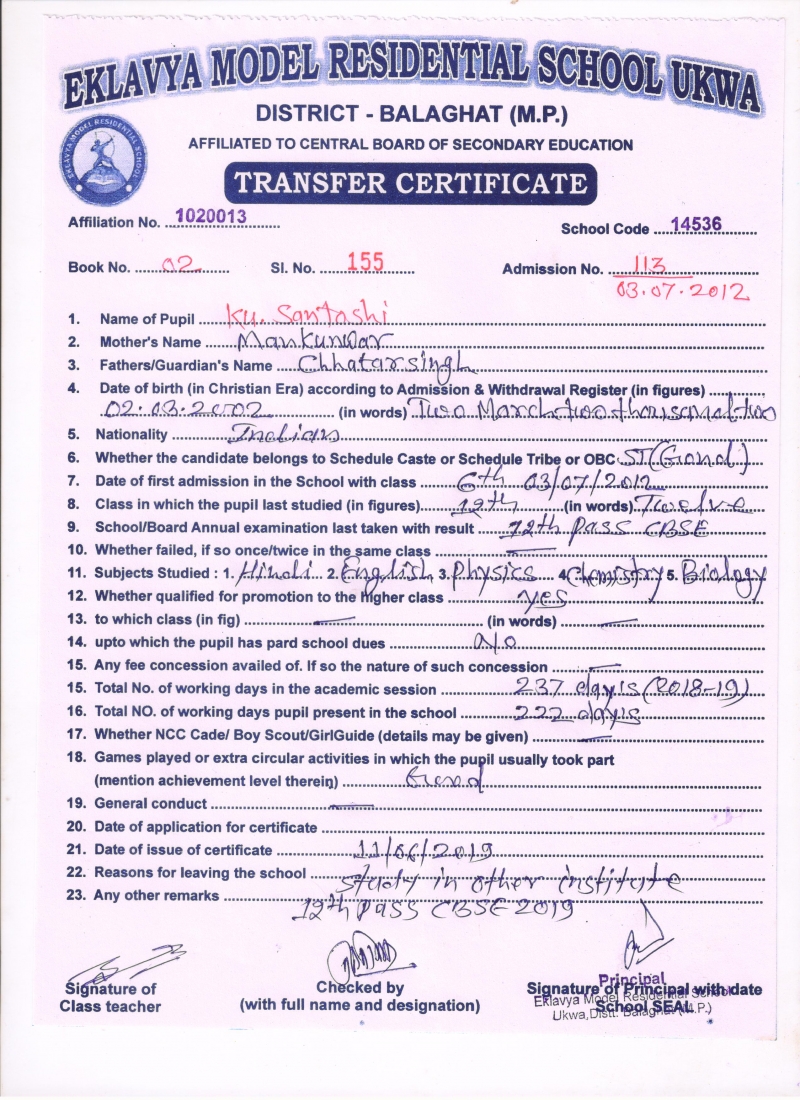 EKLAVYA MODEL RESIDENTIAL SCHOOL UKWA
DISTRICT - BALAGHAT (M.P.)
EKLAVYA MODEL RESIDENTIAL SCHOOL
AFFILIATED TO CENTRAL BOARD OF SECONDARY EDUCATION
TRANSFER CERTIFICATE
Affiliation No. 1020013 School Code 14536
Book No. 02 Sl. No. 155 Admission No. 113
03.07.2012
1. Name of Pupil Ku. Santoshi
2. Mother's Name Mankunwar
3. Fathers/Guardian's Name Chhatarsingh
4. Date of birth (in Christian Era) according to Admission & Withdrawal Register (in figures)
02.03.2002 (in words) Two March two thousand two
5. Nationality Indian
6. Whether the candidate belongs to Schedule Caste or Schedule Tribe or OBC ST (Gond)
7. Date of first admission in the School with class 6th 03/07/2012
8. Class in which the pupil last studied (in figures) 12th (in words) Twelve
9. School/Board Annual examination last taken with result 12th Pass CBSE
10. Whether failed, if so once/twice in the same class —
11. Subjects Studied : 1. Hindi 2. English 3. Physics 4 Chemistry 5. Biology
12. Whether qualified for promotion to the higher class yes
13. to which class (in fig) — (in words) —
14. upto which the pupil has pard school dues No
15. Any fee concession availed of. If so the nature of such concession —
15. Total No. of working days in the academic session 237 days (2018-19)
16. Total NO. of working days pupil present in the school 222 days
17. Whether NCC Cade/ Boy Scout/GirlGuide (details may be given) —
18. Games played or extra circular activities in which the pupil usually took part
(mention achievement level therein) Good
19. General conduct —
20. Date of application for certificate
21. Date of issue of certificate 11/06/2019
22. Reasons for leaving the school study in other institute
23. Any other remarks 12th Pass CBSE 2019
Signature of Checked by Signature of Principal with date
Class teacher (with full name and designation) School SEAL
Principal
Eklavya Model Residential School
Ukwa, Distt. Balaghat (M.P.)